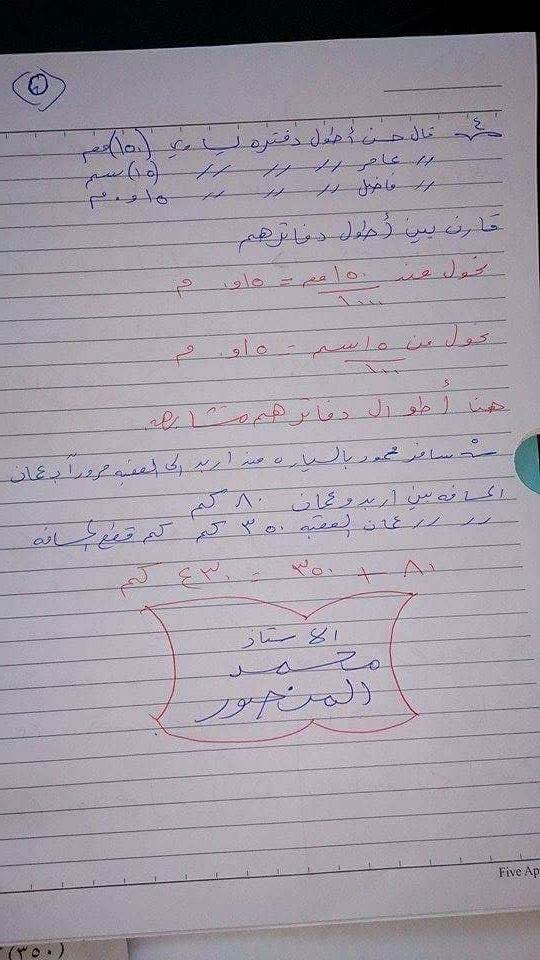 ٦
س٤ قال حسن أطول دفتره يساوي (١٥٠) مم
// عامر // // // (١٥) سم
// فاضل // // // ٠,١٥ م
قارن بين أطول دفاترهم
نحول من ١٥٠ مم = ٠,١٥ م
١٠٠٠
نحول من ١٥ سم = ٠,١٥ م
١٠٠
هنا أطوال دفاترهم متشابهه
س سافر محمود بالسياره من اربد الى العقبه مرورآ بعمان
المسافه بين اربد وعمان ٨٠ كم
// // عمان العقبه ٣٥٠ كم كم قطع المسافه
٨٠ + ٣٥٠ = ٤٣٠ كم
الاستاذ
محمد
المنصور
Five Ap
(٣٥٠)